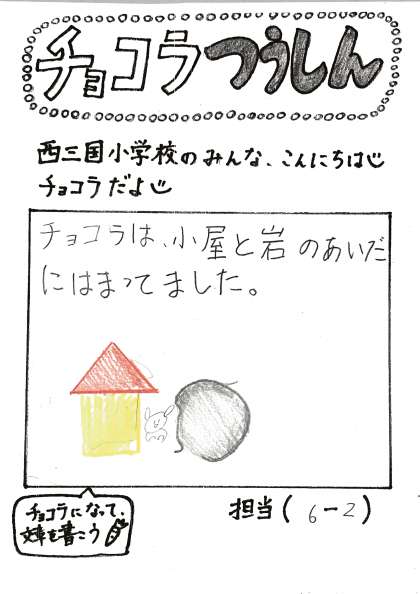 チョコラつうしん
西三国小学校のみんな、こんにちは
チョコラだよ
チョコラは、小屋と岩のあいだ
にはまってました。
チョコラになって、
文章を書こう
担当(6-2)